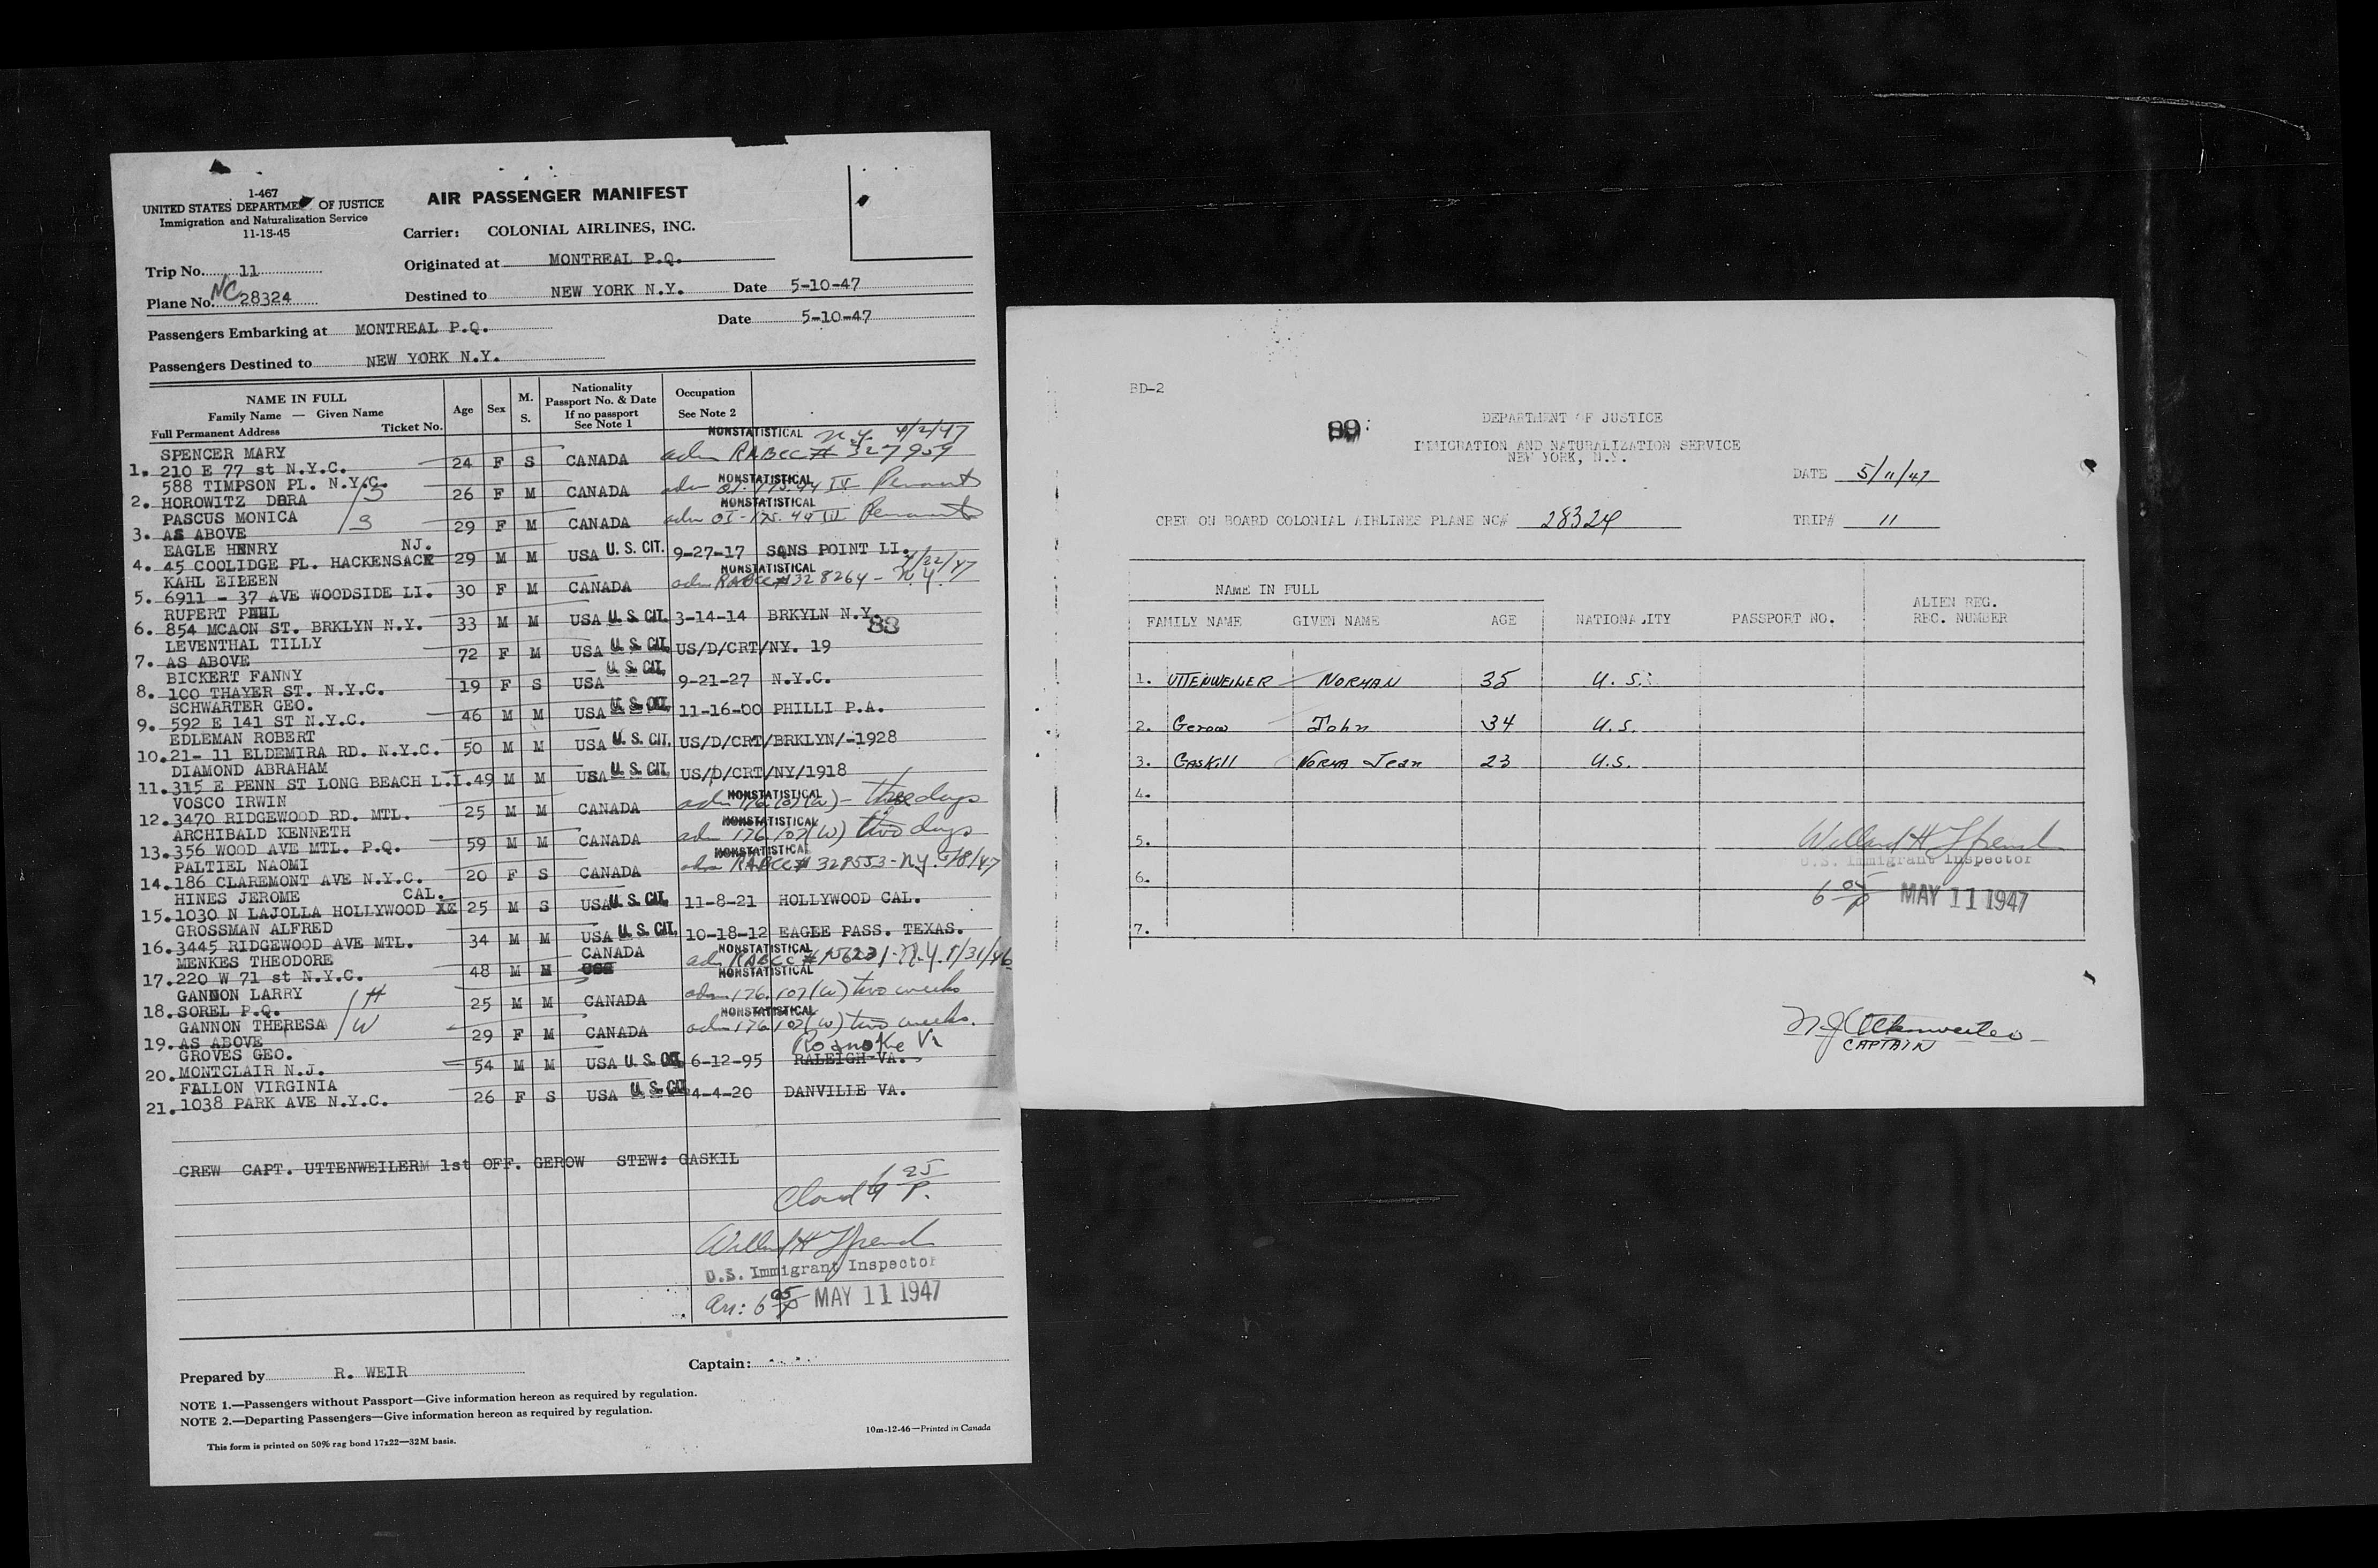 1-467
UNITED STATES DEPARTMENT OF JUSTICE
Immigration and Naturalization Service
11-13-45
AIR PASSENGER MANIFEST
Carrier: COLONIAL AIRLINES, INC.
Trip No. 11
Originated at MONTREAL P.Q.
Plane No. NC 28324
Destined to NEW YORK N.Y. Date 5-10-47
Passengers Embarking at MONTREAL P.Q. Date 5-10-47
Passengers Destined to NEW YORK N.Y.
NAME IN FULL
Family Name — Given Name
Full Permanent Address Ticket No.
Age Sex M. S.
Nationality Passport No. & Date If no passport See Note 1
Occupation See Note 2
NONSTATISTICAL N.Y. 4/2/47
SPENCER MARY
1. 210 E 77 st N.Y.C. 24 F S CANADA adm RABCC# 327959
588 TIMPSON PL. N.Y.C. NONSTATISTICAL
2. HOROWITZ DORA /S 26 F M CANADA adm
PASCUS MONICA NONSTATISTICAL
3. AS ABOVE /S 29 F M CANADA adm
EAGLE HENRY NJ.
4. 45 COOLIDGE PL. HACKENSACK 29 M M USA U. S. CIT. 9-27-17 SANS POINT LI.
KAHL EILEEN NONSTATISTICAL 4/22/47
5. 6911 - 37 AVE WOODSIDE LI. 30 F M CANADA adm RABCC#328264 - N.Y.
RUPERT PHIL
6. 854 MCAON ST. BRKLYN N.Y. 33 M M USA U. S. CIT. 3-14-14 BRKYLN N.Y.
83
LEVENTHAL TILLY
7. AS ABOVE 72 F M USA U. S. CIT. US/D/CRT/NY. 19
BICKERT FANNY
8. 100 THAYER ST. N.Y.C. 19 F S USA U. S. CIT. 9-21-27 N.Y.C.
SCHWARTER GEO.
9. 592 E 141 ST N.Y.C. 46 M M USA U. S. CIT. 11-16-00 PHILLI P.A.
EDLEMAN ROBERT
10. 21- 11 ELDEMIRA RD. N.Y.C. 50 M M USA U. S. CIT. US/D/CRT/BRKLYN/-1928
DIAMOND ABRAHAM
11. 315 E PENN ST LONG BEACH L.I. 49 M M USA U. S. CIT. US/D/CRT/NY/1918
VOSCO IRWIN NONSTATISTICAL
12. 3470 RIDGEWOOD RD. MTL. 25 M M CANADA adm 176.107(W) - three days
ARCHIBALD KENNETH NONSTATISTICAL
13. 356 WOOD AVE MTL. P.Q. 59 M M CANADA adm 176.107(W) two days
PALTIEL NAOMI NONSTATISTICAL
14. 186 CLAREMONT AVE N.Y.C. 20 F S CANADA adm RABCC# 328553 - N.Y. 5/8/47
HINES JEROME CAL.
15. 1030 N LAJOLLA HOLLYWOOD 25 M S USA U. S. CIT. 11-8-21 HOLLYWOOD CAL.
GROSSMAN ALFRED
16. 3445 RIDGEWOOD AVE MTL. 34 M M USA U. S. CIT. 10-18-12 EAGLE PASS. TEXAS.
MENKES THEODORE CANADA NONSTATISTICAL
17. 220 W 71 st N.Y.C. 48 M M adm RABCC# N.Y.
GANNON LARRY NONSTATISTICAL
18. SOREL P.Q. /H 25 M M CANADA adm 176.107(W) two weeks
GANNON THERESA NONSTATISTICAL
19. AS ABOVE /W 29 F M CANADA adm 176.107(W) two weeks.
GROVES GEO. Roanoke Va
20. MONTCLAIR N.J. 54 M M USA U. S. CIT. 6-12-95 RALEIGH VA.
FALLON VIRGINIA
21. 1038 PARK AVE N.Y.C. 26 F S USA U. S. CIT. 4-4-20 DANVILLE VA.
CREW CAPT. UTTENWEILERM 1st OFF. GEROW STEW: GASKIL
25 P.
U.S. Immigrant Inspector
Arr: 6 05 P MAY 11 1947
Prepared by R. WEIR Captain:
NOTE 1.—Passengers without Passport—Give information hereon as required by regulation.
NOTE 2.—Departing Passengers—Give information hereon as required by regulation.
This form is printed on 50% rag bond 17x22—32M basis.
10m-12-46—Printed in Canada
BD-2
89
DEPARTMENT OF JUSTICE
IMMIGRATION AND NATURALIZATION SERVICE
NEW YORK, N.Y.
DATE 5/11/47
CREW ON BOARD COLONIAL AIRLINES PLANE NC# 28324 TRIP# 11
NAME IN FULL
FAMILY NAME GIVEN NAME AGE NATIONALITY PASSPORT NO. ALIEN REG. REC. NUMBER
1. UTTENWEILER NORMAN 35 U.S.
2. Gerow John 34 U.S.
3. GASKill NORMA Jean 23 U.S.
4.
5.
U.S. Immigrant Inspector
6.
6 05 P MAY 11 1947
7.
N J Uttenweiler
CAPTAIN